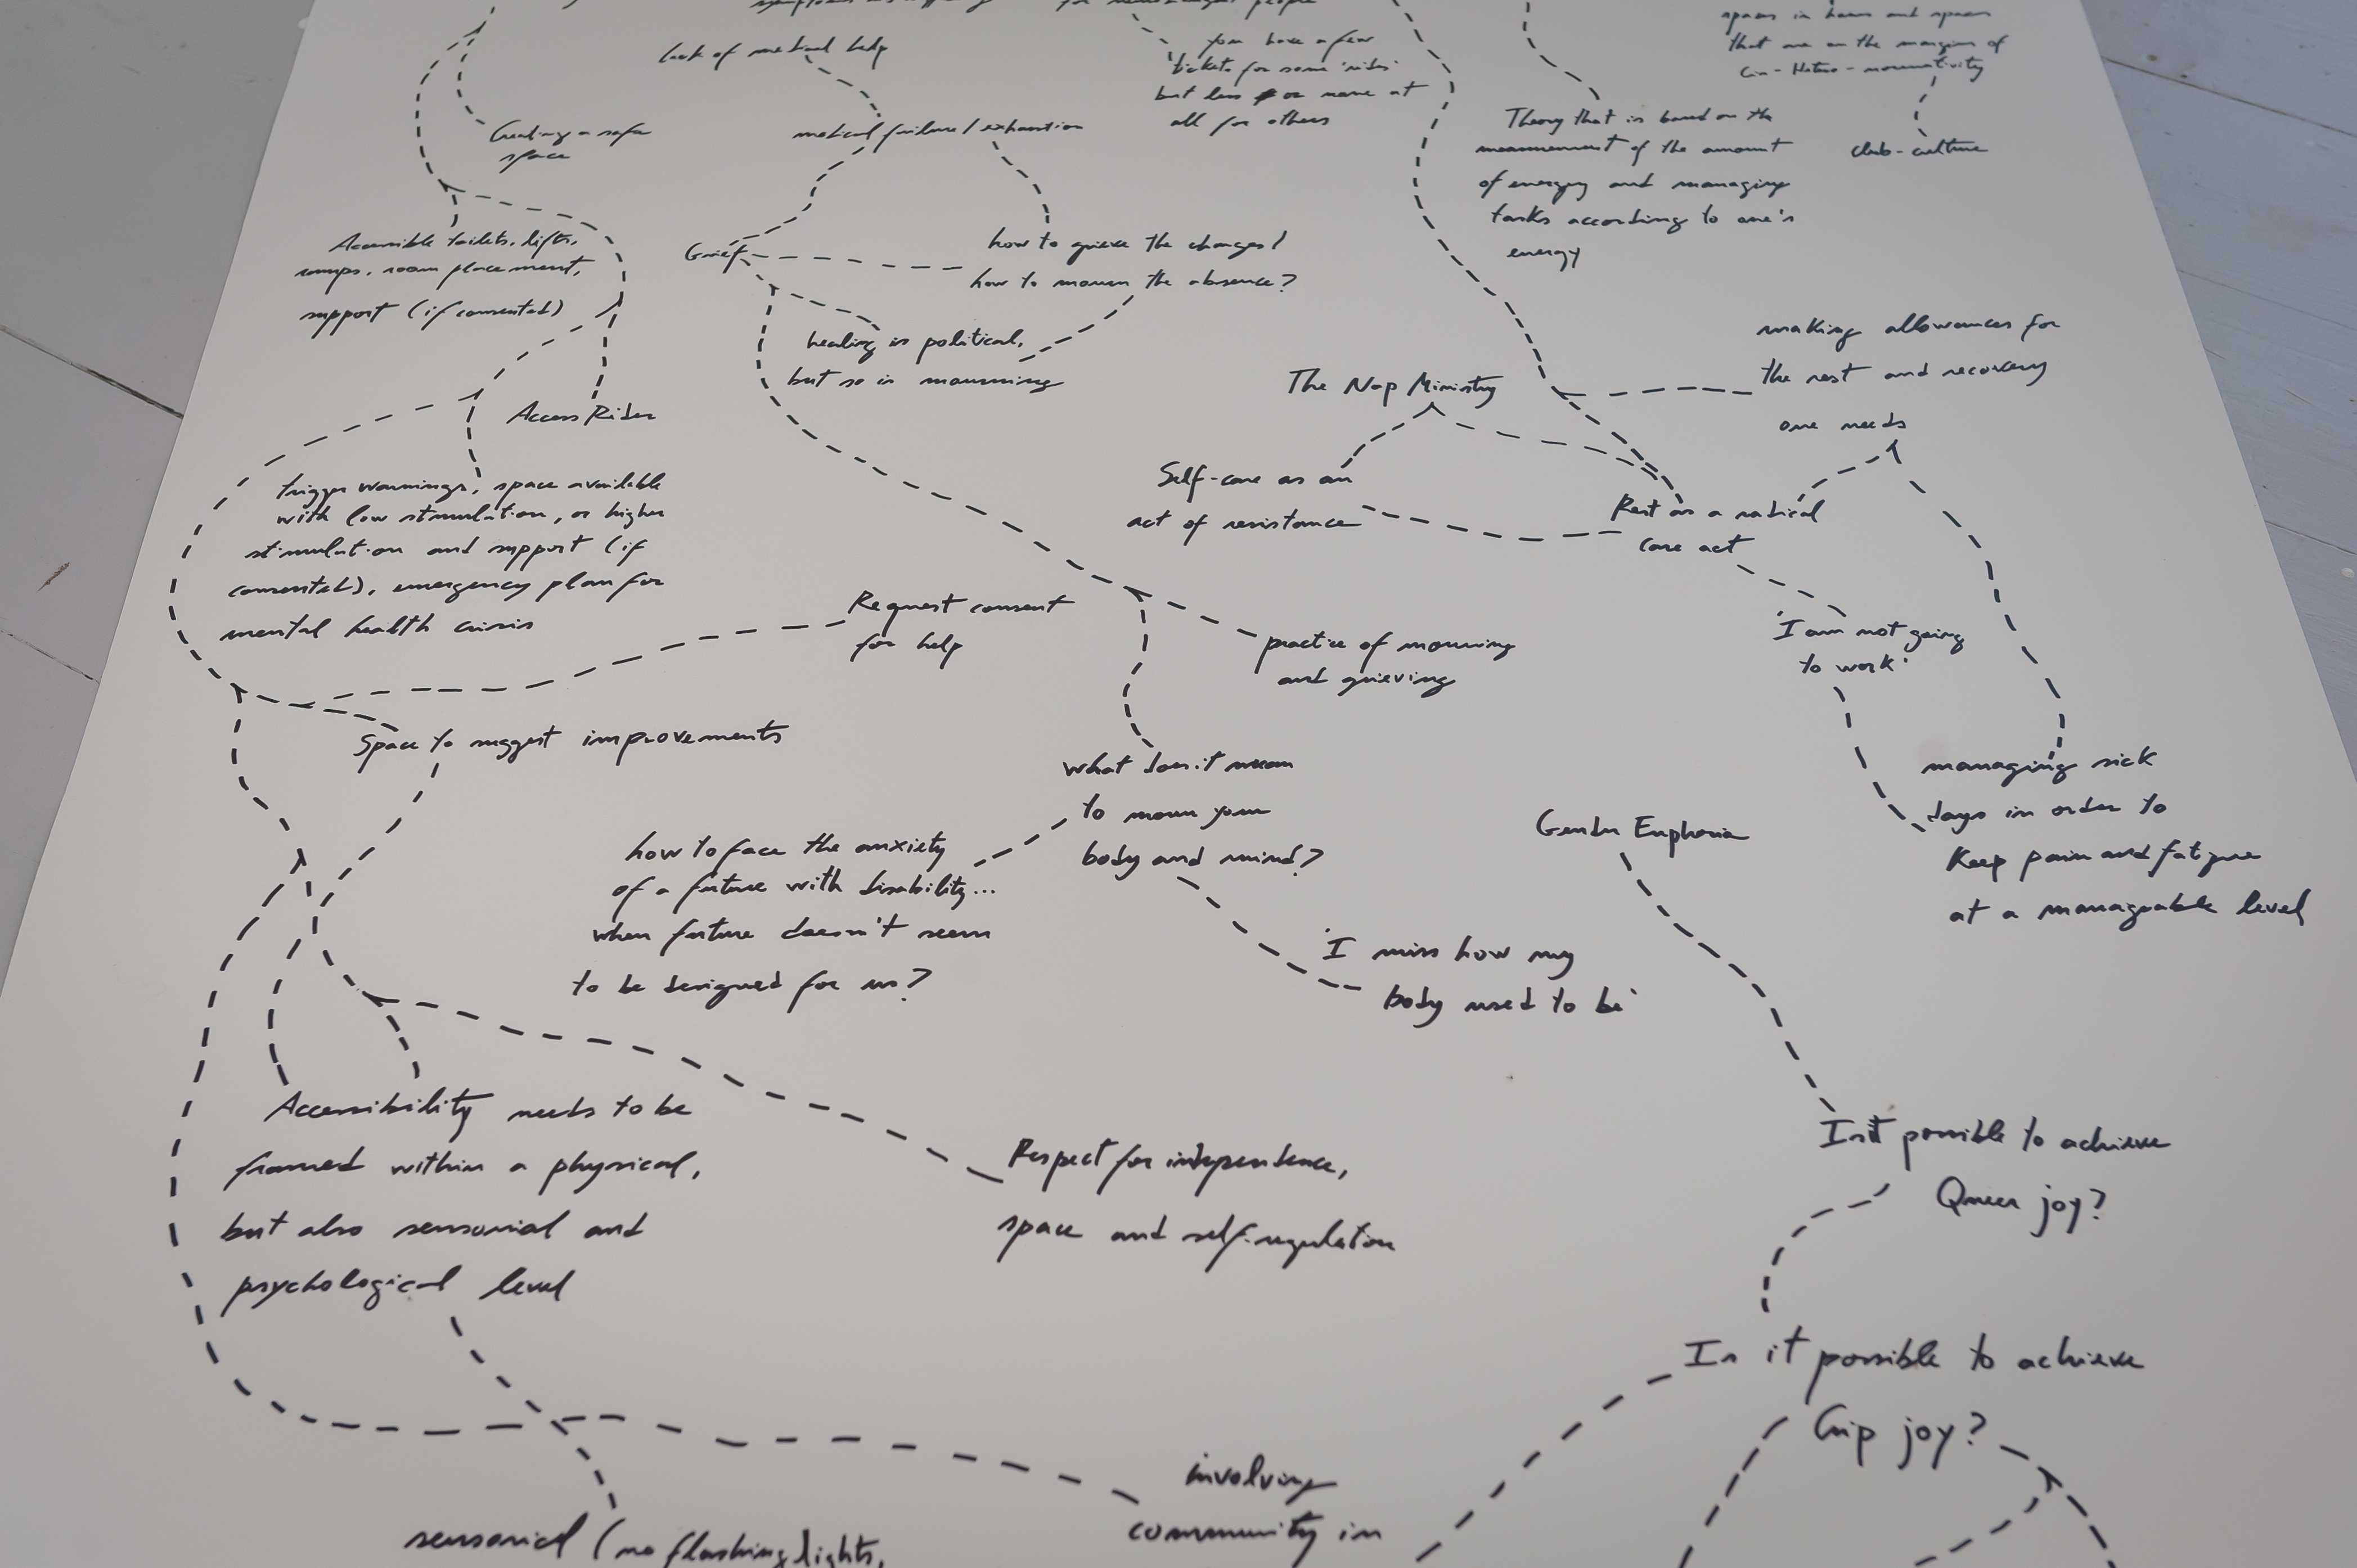 for neurodivergent people
spaces in between and spaces
that are on the margins of
Cis-Hetero-normativity
club-culture
lack of medical help
you have a few
tickets for some 'rides'
but less or none at
all for others
Creating a safe
space
medical failure/exhaustion
Theory that is based on the
measurement of the amount
of energy and managing
tasks according to one's
energy
Accessible toilets, lifts,
ramps, room placement,
support (if consented)
Grief
how to grieve the changes/
how to mourn the absence?
healing is political,
but so is mourning
Access Rider
The Nap Ministry
making allowances for
the rest and recovery
one needs
Self-care as an
act of resistance
Rest as a radical
care act
trigger warnings, space available
with low stimulation, or higher
stimulation and support (if
consented), emergency plan for
mental health crisis
Request consent
for help
practice of mourning
and grieving
'I am not going
to work'
Space to suggest improvements
what does it mean
to mourn your
body and mind?
managing sick
days in order to
keep pain and fatigue
at a manageable level
Gender Euphoria
how to face the anxiety
of a future with disability...
when future doesn't seem
to be designed for us?
'I miss how my
body used to be'
Accessibility needs to be
framed within a physical,
but also sensorial and
psychological level
Respect for independence,
space and self-regulation
Is it possible to achieve
Queer joy?
Is it possible to achieve
Crip joy?
involving
community in
sensorial (no flashing lights,